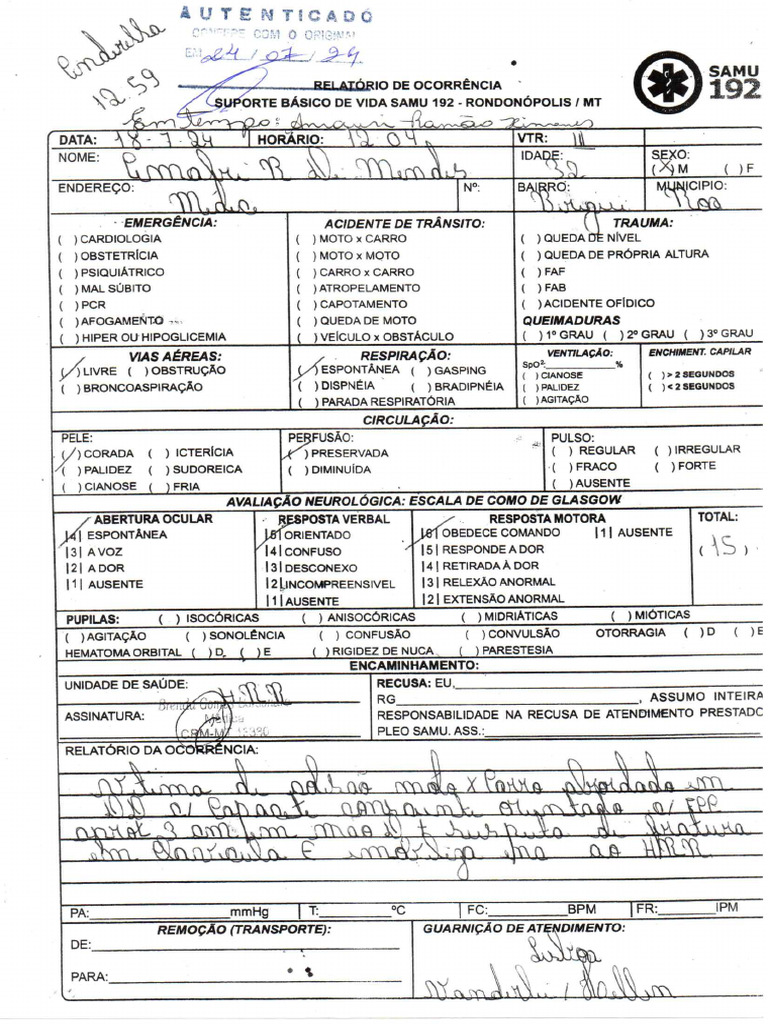 AUTENTICADO
CONFERE COM O ORIGINAL
EM 24/07/24
12:59
RELATÓRIO DE OCORRÊNCIA
SUPORTE BÁSICO DE VIDA SAMU 192 - RONDONÓPOLIS / MT
SAMU
192
Em tempo: Amauri Ramão Ximenes
DATA: 18-7-24 HORÁRIO: 12 04 VTR: III
NOME: R de Mendes IDADE: 32 SEXO: (X) M ( ) F
ENDEREÇO: Nº: BAIRRO: MUNICIPIO: Roo
EMERGÊNCIA: ACIDENTE DE TRÂNSITO: TRAUMA:
( ) CARDIOLOGIA ( ) MOTO x CARRO ( ) QUEDA DE NÍVEL
( ) OBSTETRÍCIA ( ) MOTO x MOTO ( ) QUEDA DE PRÓPRIA ALTURA
( ) PSIQUIÁTRICO ( ) CARRO x CARRO ( ) FAF
( ) MAL SÚBITO ( ) ATROPELAMENTO ( ) FAB
( ) PCR ( ) CAPOTAMENTO ( ) ACIDENTE OFÍDICO
( ) AFOGAMENTO ( ) QUEDA DE MOTO QUEIMADURAS
( ) HIPER OU HIPOGLICEMIA ( ) VEÍCULO x OBSTÁCULO ( ) 1º GRAU ( ) 2º GRAU ( ) 3º GRAU
VIAS AÉREAS: RESPIRAÇÃO: VENTILAÇÃO: ENCHIMENT. CAPILAR
(/) LIVRE ( ) OBSTRUÇÃO (/) ESPONTÂNEA ( ) GASPING SpO²:____% ( ) > 2 SEGUNDOS
( ) BRONCOASPIRAÇÃO ( ) DISPNÉIA ( ) BRADIPNÉIA ( ) CIANOSE ( ) < 2 SEGUNDOS
( ) PARADA RESPIRATÓRIA ( ) PALIDEZ
( ) AGITAÇÃO
CIRCULAÇÃO:
PELE: PERFUSÃO: PULSO:
(/) CORADA ( ) ICTERÍCIA (/) PRESERVADA ( ) REGULAR ( ) IRREGULAR
( ) PALIDEZ ( ) SUDOREICA ( ) DIMINUÍDA ( ) FRACO ( ) FORTE
( ) CIANOSE ( ) FRIA ( ) AUSENTE
AVALIAÇÃO NEUROLÓGICA: ESCALA DE COMO DE GLASGOW
ABERTURA OCULAR RESPOSTA VERBAL RESPOSTA MOTORA TOTAL:
|4| ESPONTÂNEA |5| ORIENTADO |6| OBEDECE COMANDO |1| AUSENTE
|3| A VOZ |4| CONFUSO |5| RESPONDE A DOR (15)
|2| A DOR |3| DESCONEXO |4| RETIRADA À DOR
|1| AUSENTE |2| INCOMPREENSIVEL |3| RELEXÃO ANORMAL
|1| AUSENTE |2| EXTENSÃO ANORMAL
PUPILAS: ( ) ISOCÓRICAS ( ) ANISOCÓRICAS ( ) MIDRIÁTICAS ( ) MIÓTICAS
( ) AGITAÇÃO ( ) SONOLÊNCIA ( ) CONFUSÃO ( ) CONVULSÃO OTORRAGIA ( ) D ( ) E
HEMATOMA ORBITAL ( ) D, ( ) E ( ) RIGIDEZ DE NUCA ( ) PARESTESIA
ENCAMINHAMENTO:
UNIDADE DE SAÚDE: HRR RECUSA: EU,
RG , ASSUMO INTEIRA
ASSINATURA: Médica RESPONSABILIDADE NA RECUSA DE ATENDIMENTO PRESTADO
CRM-MT PLEO SAMU. ASS.:
RELATÓRIO DA OCORRÊNCIA:
Vitima de colisão moto x Carro abordado em
DD c/ Capacete consciente orientado c/ FCC
aprox 3 cm em mao D + suspeita de fratura
em Clavicula E ao HRR
PA: mmHg T: ºC FC: BPM FR: IPM
REMOÇÃO (TRANSPORTE): GUARNIÇÃO DE ATENDIMENTO:
DE:
PARA: Vanderlei /